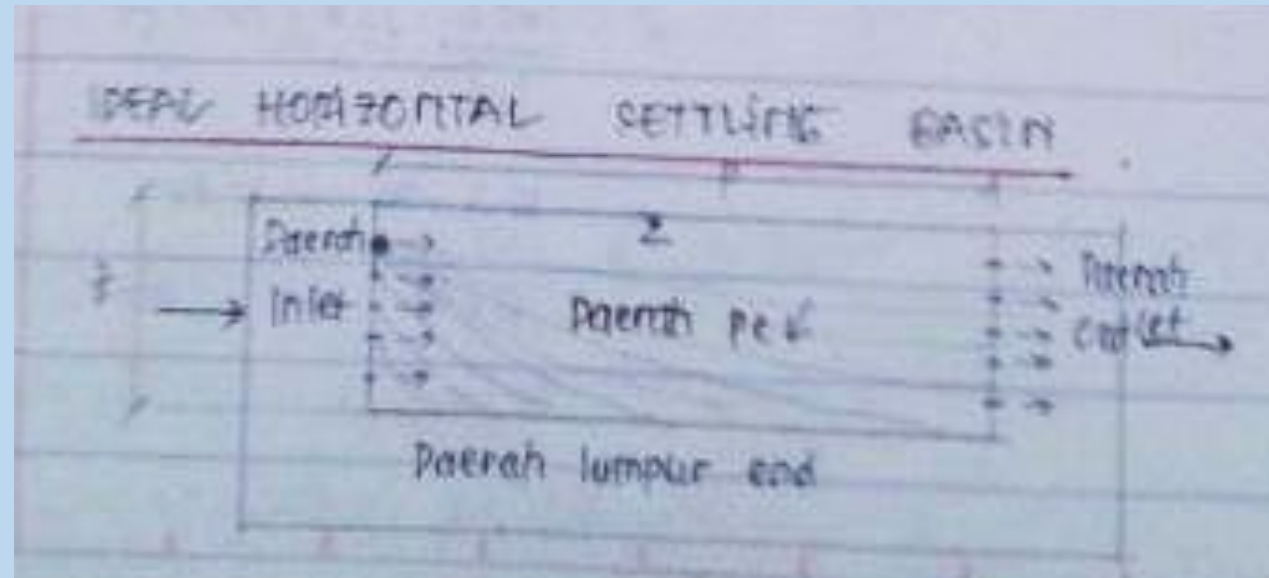 IDEAL HORIZONTAL SETTLING BASIN
Daerah
Inlet
Daerah pe ↓
Daerah
Outlet
Daerah lumpur end